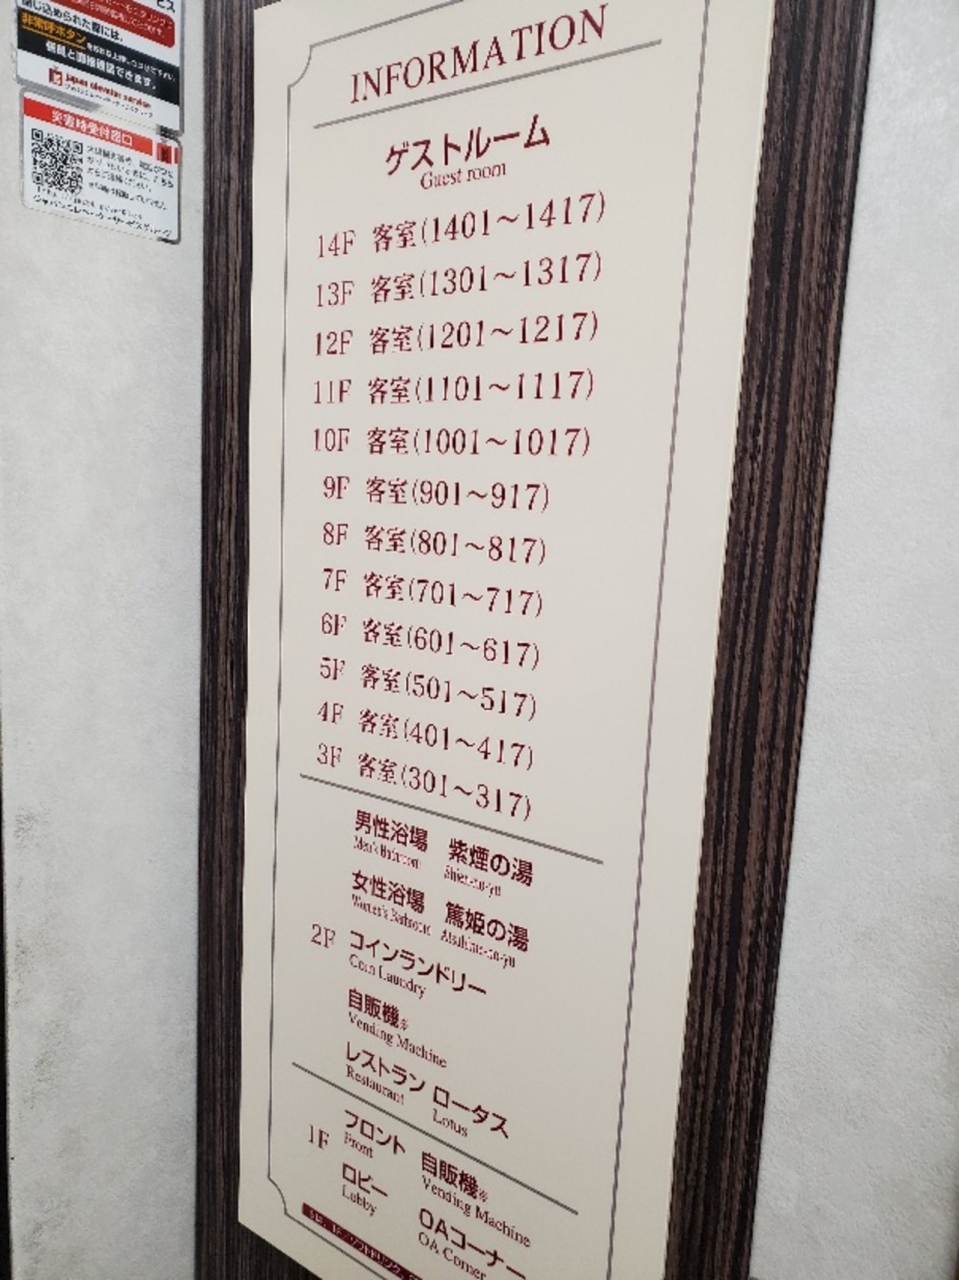 ビス
閉じ込められた際には、
非常呼ボタン
係員と直接通話できます。
Japan elevator service
災害時受付窓口
INFORMATION
ゲストルーム
Guest room
14F 客室(1401～1417)
13F 客室(1301～1317)
12F 客室(1201～1217)
11F 客室(1101～1117)
10F 客室(1001～1017)
9F 客室(901～917)
8F 客室(801～817)
7F 客室(701～717)
6F 客室(601～617)
5F 客室(501～517)
4F 客室(401～417)
3F 客室(301～317)
男性浴場 紫煙の湯
Men's Bathroom Shien-no-yu
女性浴場 篤姫の湯
Women's Bathroom Atsuhime-no-yu
2F コインランドリー
Coin Laundry
自販機※
Vending Machine
レストラン ロータス
Restaurant Lotus
1F フロント 自販機※
Front Vending Machine
ロビー OAコーナー
Lobby OA Corner